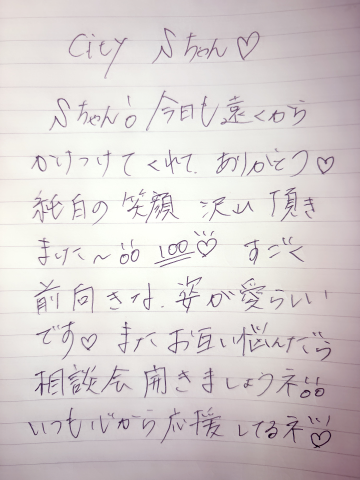 City Sちゃん♡
Sちゃん!今日も遠くから
かけつけてくれて、ありがとう♡
純白の笑顔 沢山 頂き
ました〜!! 100♡ すごく
前向きな、姿が愛らしい
です♡ またお互い悩んだら
相談会開きましょうネ!!
いつも心から応援してるネ♡